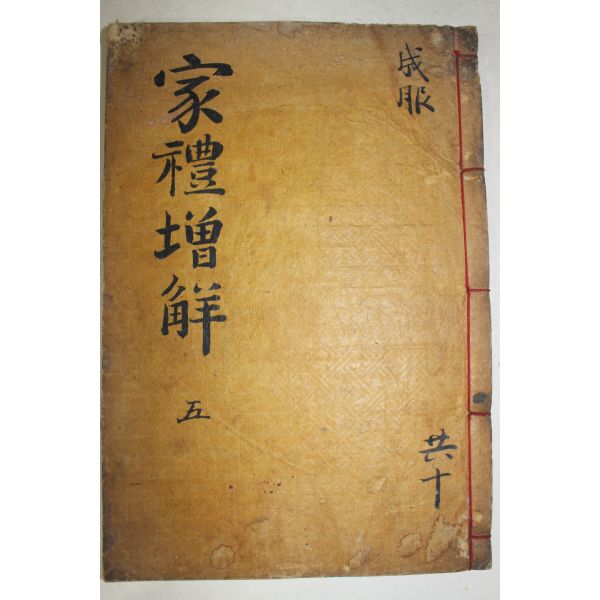 成服
家禮增觧
五
共十